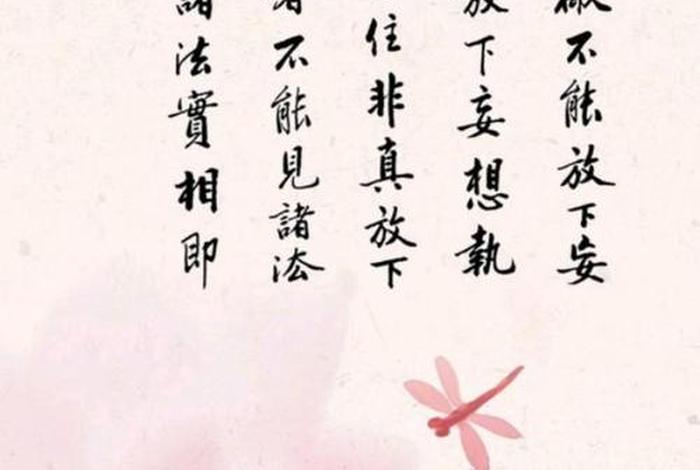 不能放下妄
放下妄想執
住非真放下
不能見諸法
諸法實相即